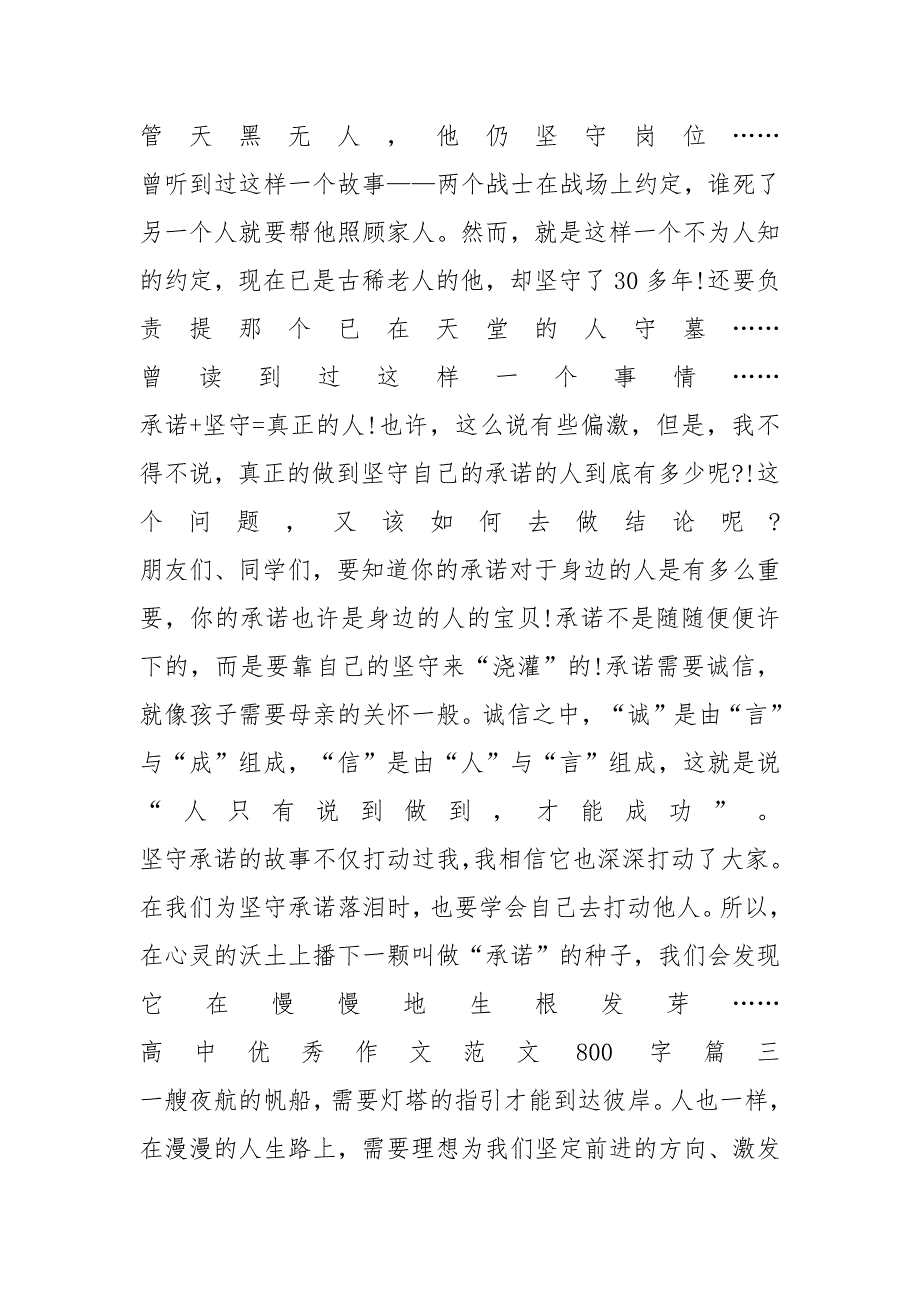 管天黑无人，他仍坚守岗位……
曾听到过这样一个故事——两个战士在战场上约定，谁死了
另一个人就要帮他照顾家人。然而，就是这样一个不为人知
的约定，现在已是古稀老人的他，却坚守了 30 多年!还要负
责提那个已在天堂的人守墓……
曾读到过这样一个事情……
承诺+坚守=真正的人!也许，这么说有些偏激，但是，我不
得不说，真正的做到坚守自己的承诺的人到底有多少呢?!这
个问题，又该如何去做结论呢?
朋友们、同学们，要知道你的承诺对于身边的人是有多么重
要，你的承诺也许是身边的人的宝贝!承诺不是随随便便许
下的，而是要靠自己的坚守来“浇灌”的!承诺需要诚信，
就像孩子需要母亲的关怀一般。诚信之中，“诚”是由“言”
与“成”组成，“信”是由“人”与“言”组成，这就是说
“人只有说到做到，才能成功”。
坚守承诺的故事不仅打动过我，我相信它也深深打动了大家。
在我们为坚守承诺落泪时，也要学会自己去打动他人。所以，
在心灵的沃土上播下一颗叫做“承诺”的种子，我们会发现
它在慢慢地生根发芽……
高中优秀作文范文 800 字篇三
一艘夜航的帆船，需要灯塔的指引才能到达彼岸。人也一样，
在漫漫的人生路上，需要理想为我们坚定前进的方向、激发